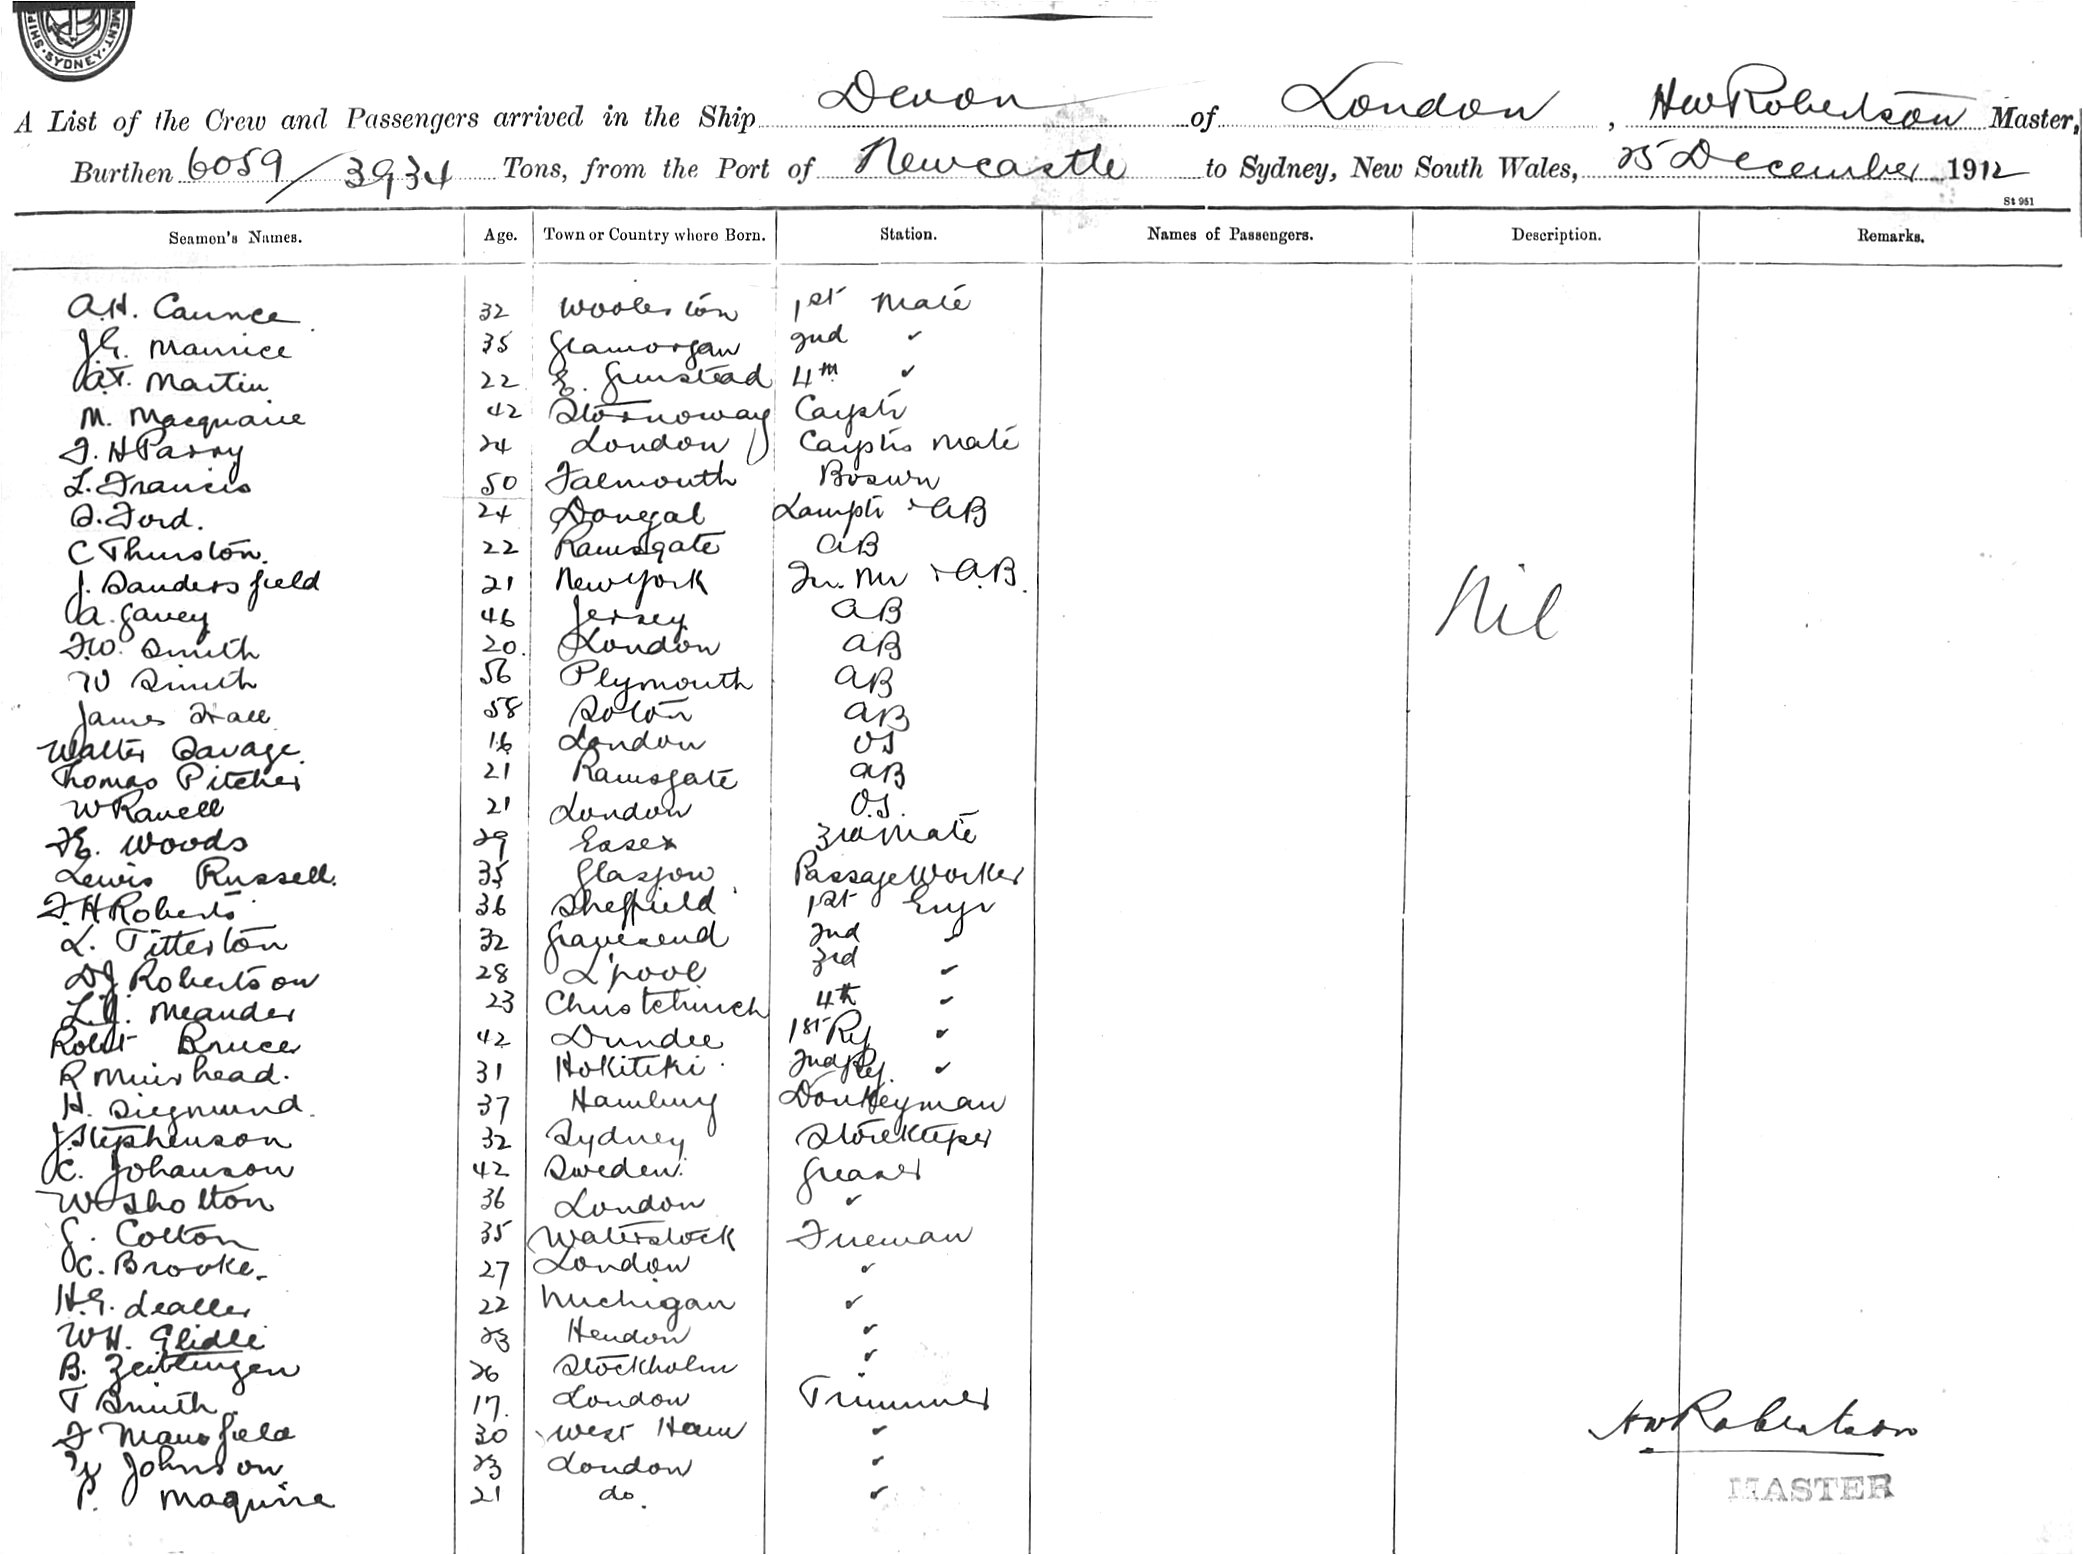 MENT · SYDNEY · SHIP
A List of the Crew and Passengers arrived in the Ship Devon of London, HW Robertson Master,
Burthen 6059/3934 Tons, from the Port of Newcastle to Sydney, New South Wales, 25 December 1912
St 951
Seamen's Names. Age. Town or Country where Born. Station. Names of Passengers. Description. Remarks.
A.H. Caunce 32 Woolston 1st Mate
J.E. Maurice 35 Glamorgan 2nd "
A.T. Martin 22 E. Grinstead 4th "
M. Macquarie 42 Stornoway Carptr
F. H Parry 24 London Carptrs Mate
L. Francis 50 Falmouth Bosun
Ford. 24 Donegal Lamptr & AB
C Thurston. 22 Ramsgate AB
J. Sandersfield 21 New York & A.B.
Nil
A. Gavey 46 Jersey AB
F.W. Smith 20. London AB
W Smith 56 Plymouth AB
James Hall 58 Soton AB
Walter Savage. 16 London OS
Thomas Pitcher 21 Ramsgate AB
W Ravell 21 London O.S.
F.E. Woods 29 Essex 3rd Mate
Lewis Russell. 35 Glasgow Passage Worker
F. H Roberts 36 Sheffield 1st Engr
L. Titterton 32 Gravesend 2nd "
D J Robertson 28 L'pool 3rd "
Meander 23 Christchurch 4th "
Robt Bruce 42 Dundee 1st Rfr "
R Muirhead. 31 Hokitiki 2nd Rfr. "
H. Siegmund. 37 Hamburg Donkeyman
J. Stephenson 32 Sydney Storekeeper
C. Johanson 42 Sweden. Greaser
W Sholton 36 London "
G. Cotton 35 Waterstock Fireman
C. Brooke. 27 London "
H.E. 22 Michigan "
W.H. 23 Hendon "
B. Zeitlingen 26 Stockholm "
T Smith. 17. London Trimmer
F Mansfield 30 West Ham "
HW Robertson
Johnson 23 London "
P. Maguire 21 do. "
MASTER